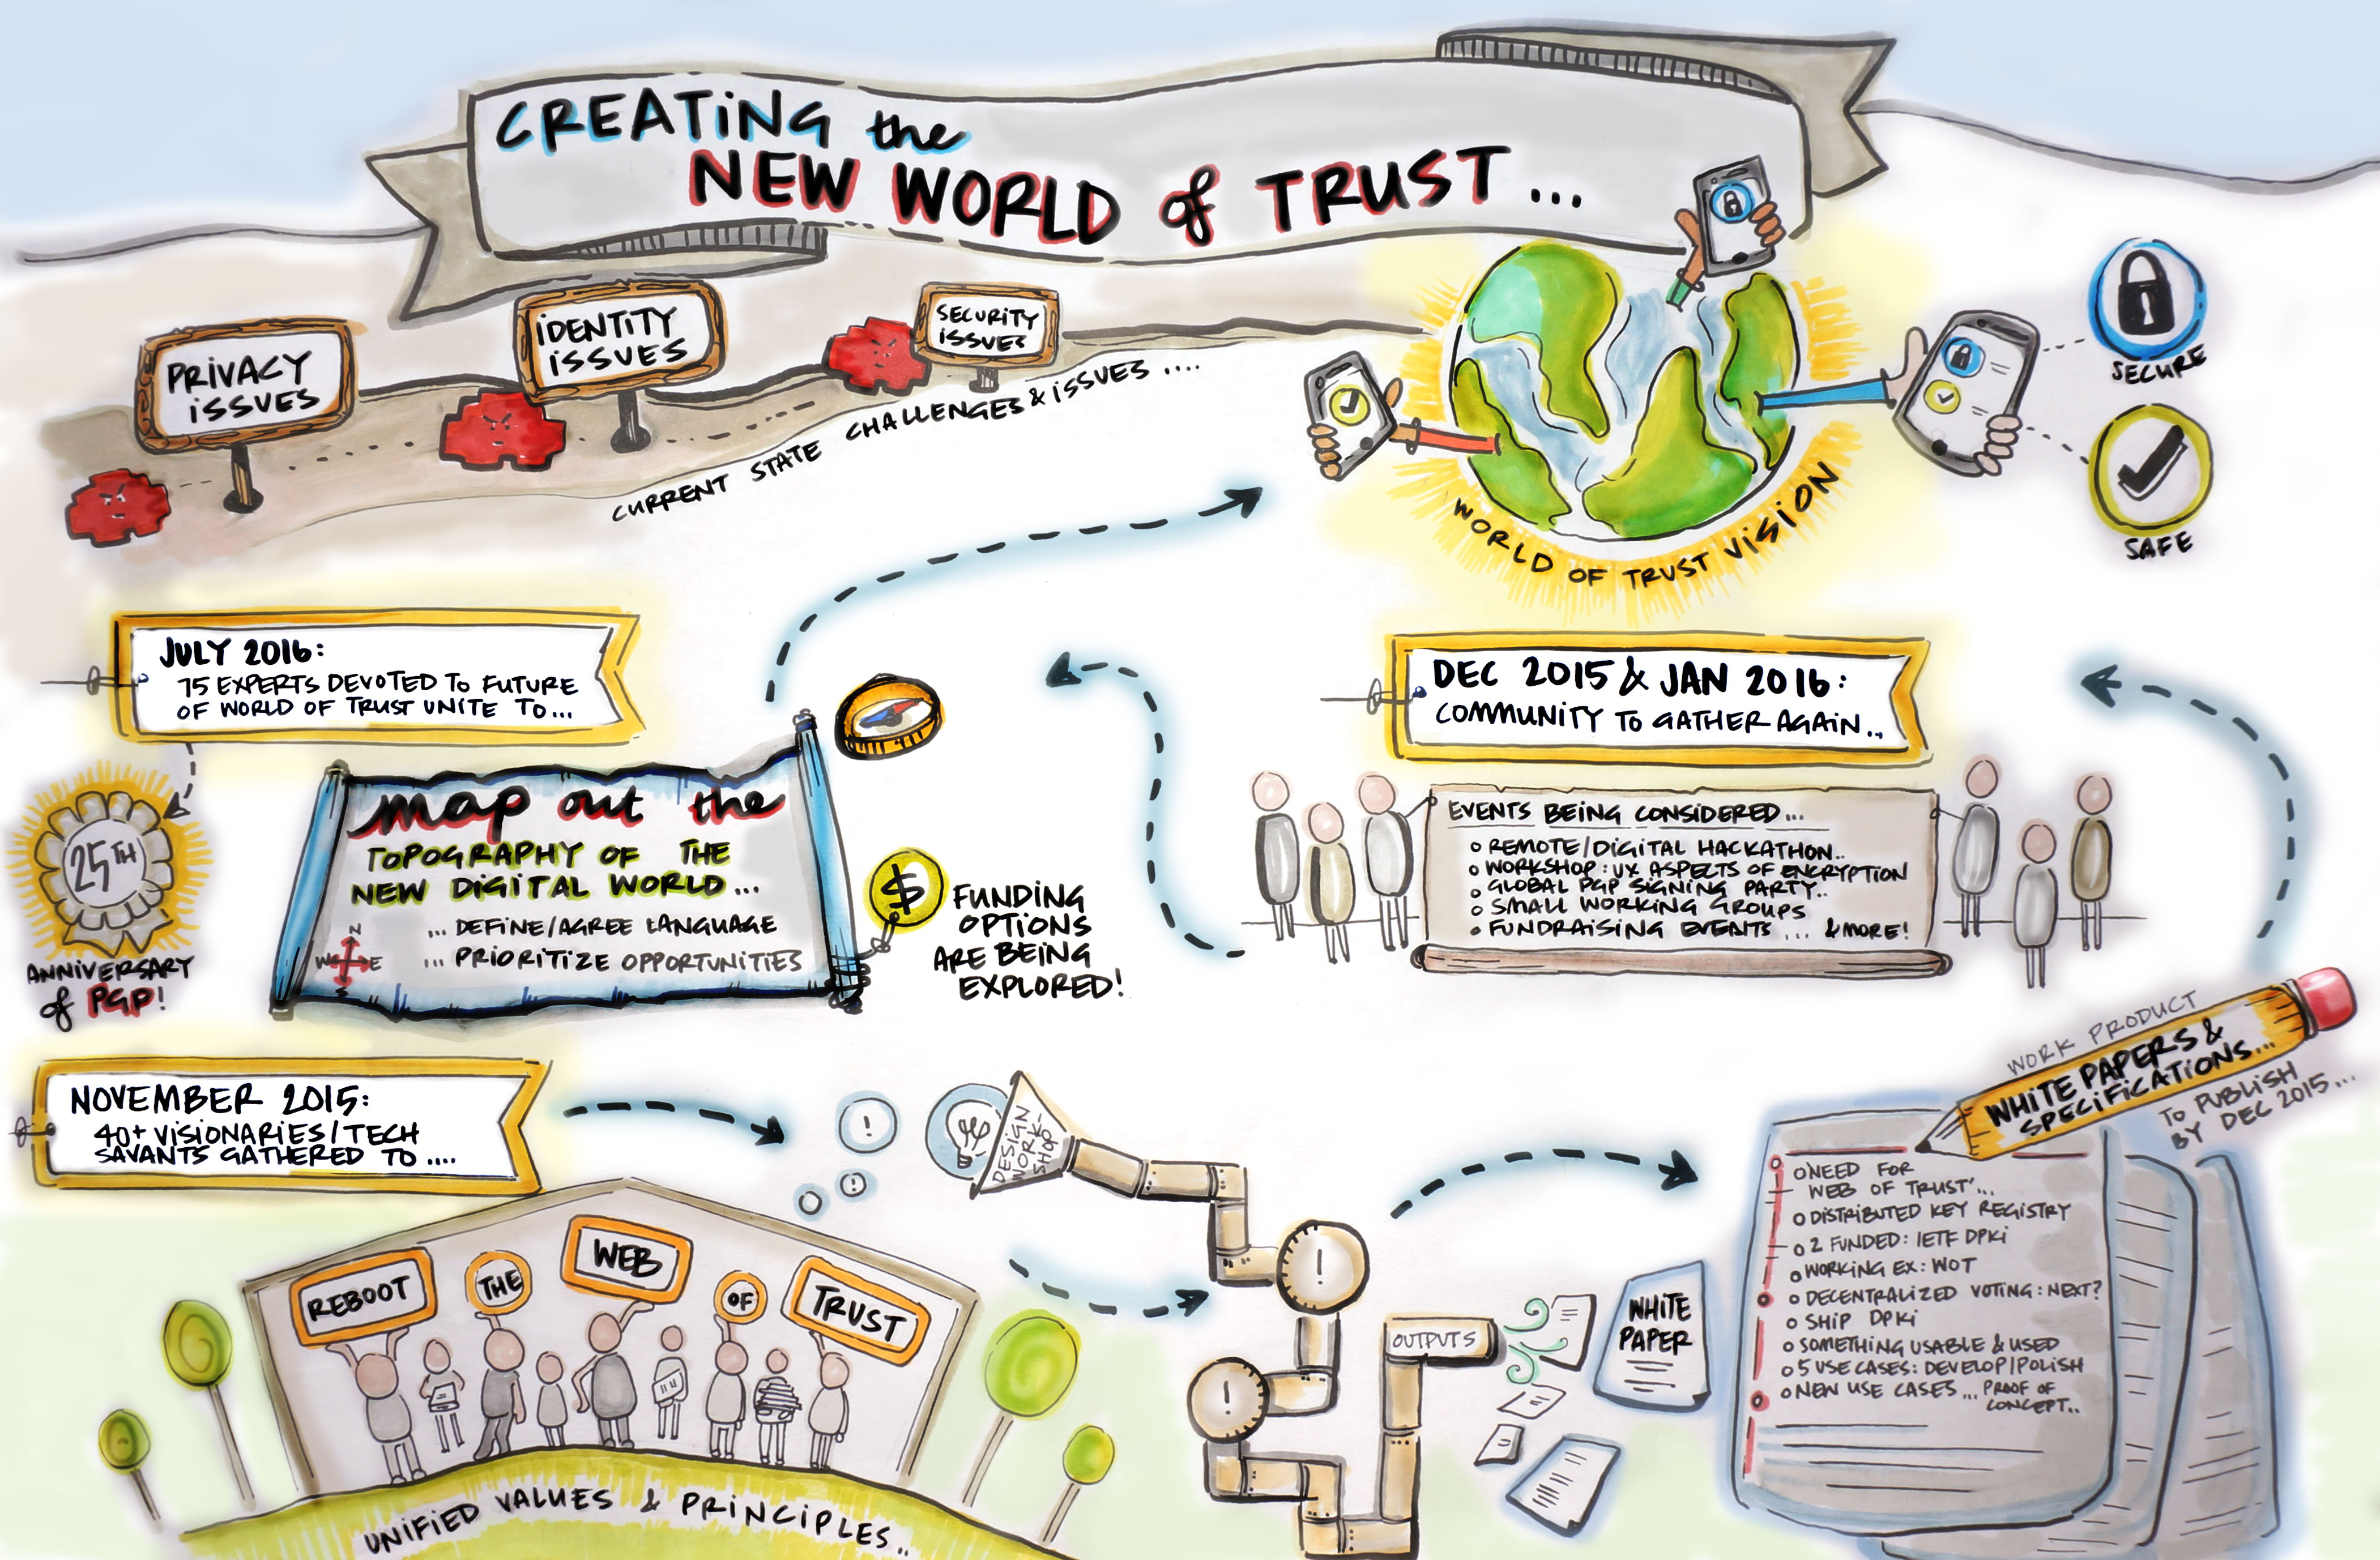 CREATING the
NEW WORLD of TRUST...
PRIVACY
ISSUES
IDENTITY
ISSUES
SECURITY
ISSUES
CURRENT STATE CHALLENGES & ISSUES ....
WORLD OF TRUST VISION
SECURE
SAFE
JULY 2016:
75 EXPERTS DEVOTED TO FUTURE
OF WORLD OF TRUST UNITE TO...
25TH
ANNIVERSARY
of PGP!
map out the
TOPOGRAPHY OF THE
NEW DIGITAL WORLD...
... DEFINE/AGREE LANGUAGE
... PRIORITIZE OPPORTUNITIES
N
W E
S
$
FUNDING
OPTIONS
ARE BEING
EXPLORED!
DEC 2015 & JAN 2016:
COMMUNITY TO GATHER AGAIN...
EVENTS BEING CONSIDERED...
o REMOTE/DIGITAL HACKATHON..
o WORKSHOP: UX ASPECTS OF ENCRYPTION
o GLOBAL PGP SIGNING PARTY..
o SMALL WORKING GROUPS
o FUNDRAISING EVENTS ... & MORE!
NOVEMBER 2015:
40+ VISIONARIES/TECH
SAVANTS GATHERED TO ....
REBOOT
THE
WEB
OF
TRUST
UNIFIED VALUES & PRINCIPLES..
!
!
DESIGN
WORK-
SHOP
!
!
OUTPUTS
WHITE
PAPER
WORK PRODUCT
WHITE PAPERS &
SPECIFICATIONS...
TO PUBLISH
BY DEC 2015...
o NEED FOR
WEB OF TRUST'...
o DISTRIBUTED KEY REGISTRY
o 2 FUNDED: IETF DPKI
o WORKING EX: WOT
o DECENTRALIZED VOTING: NEXT?
o SHIP DPKI
o SOMETHING USABLE & USED
o 5 USE CASES: DEVELOP/POLISH
o NEW USE CASES ... PROOF OF
CONCEPT..